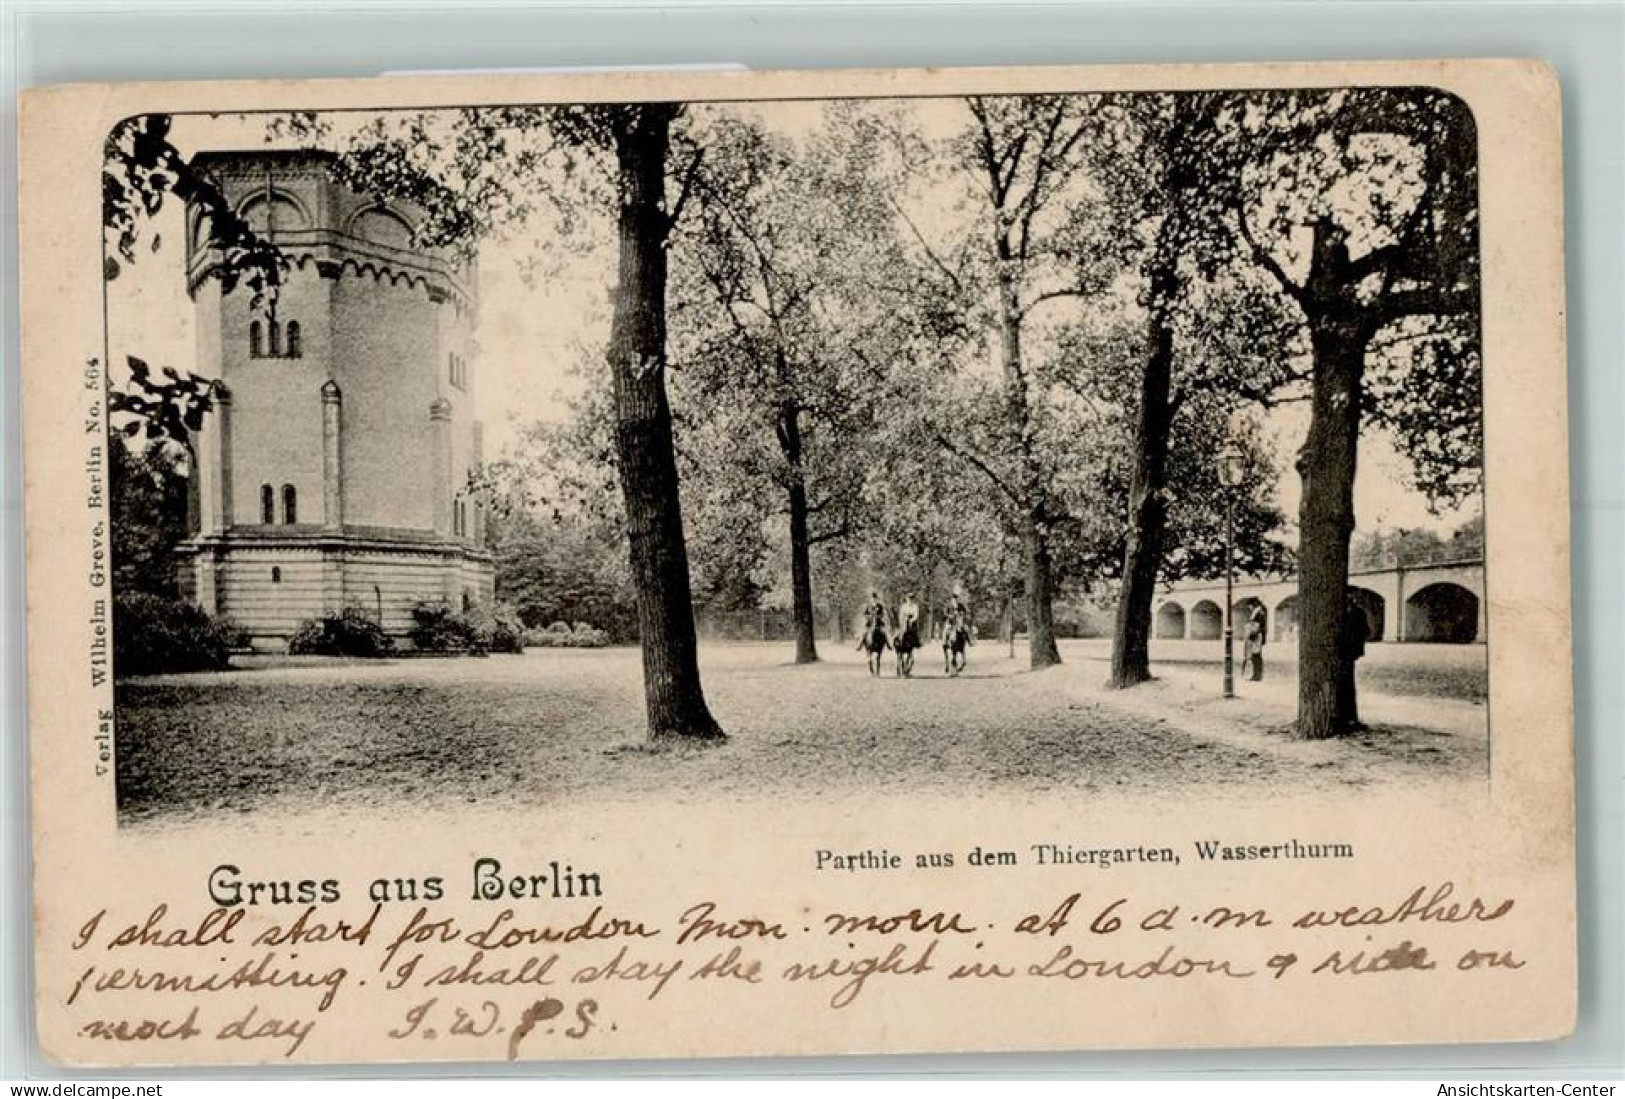 Verlag Wilhelm Greve. Berlin No. 564
Parthie aus dem Thiergarten, Wasserthurm
Gruss aus Berlin
I shall start for London Mon. morn. at 6 a.m weathers
permitting. I shall stay the night in London & ride on
next day I.W.P.S.
www.delcampe.net
Ansichtskarten-Center